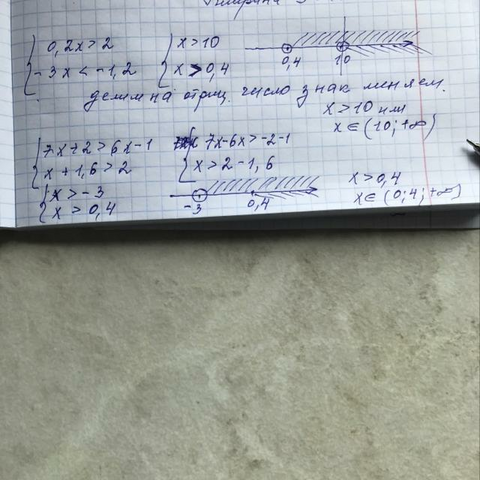 0,2x>2 x>10
-3x<-1,2 x>0,4 0,4 10
делим на отриц. число знак меняем.
x>10 или
x∈(10;+∞)
7x+2>6x-1 7x-6x>-2-1
x+1,6>2 x>2-1,6
x>-3
x>0,4 -3 0,4
x>0,4
x∈(0;4;+∞)